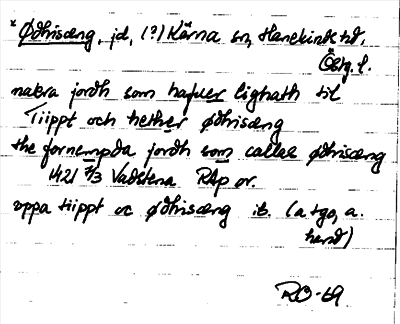 * Ødhrisæng, jd, (?) Kärna sn, Hanekinds hd.
Östg. l.
nakra jordh som hafuer lighath til
Tiippt och hether ødhrisæng
the fornempda jordh som callas ødhrisæng
1421 7/3 Vadstena RAp or.
vppa tiippt oc ødhrisæng ib. (a tgo, a.
hand)
RO-69